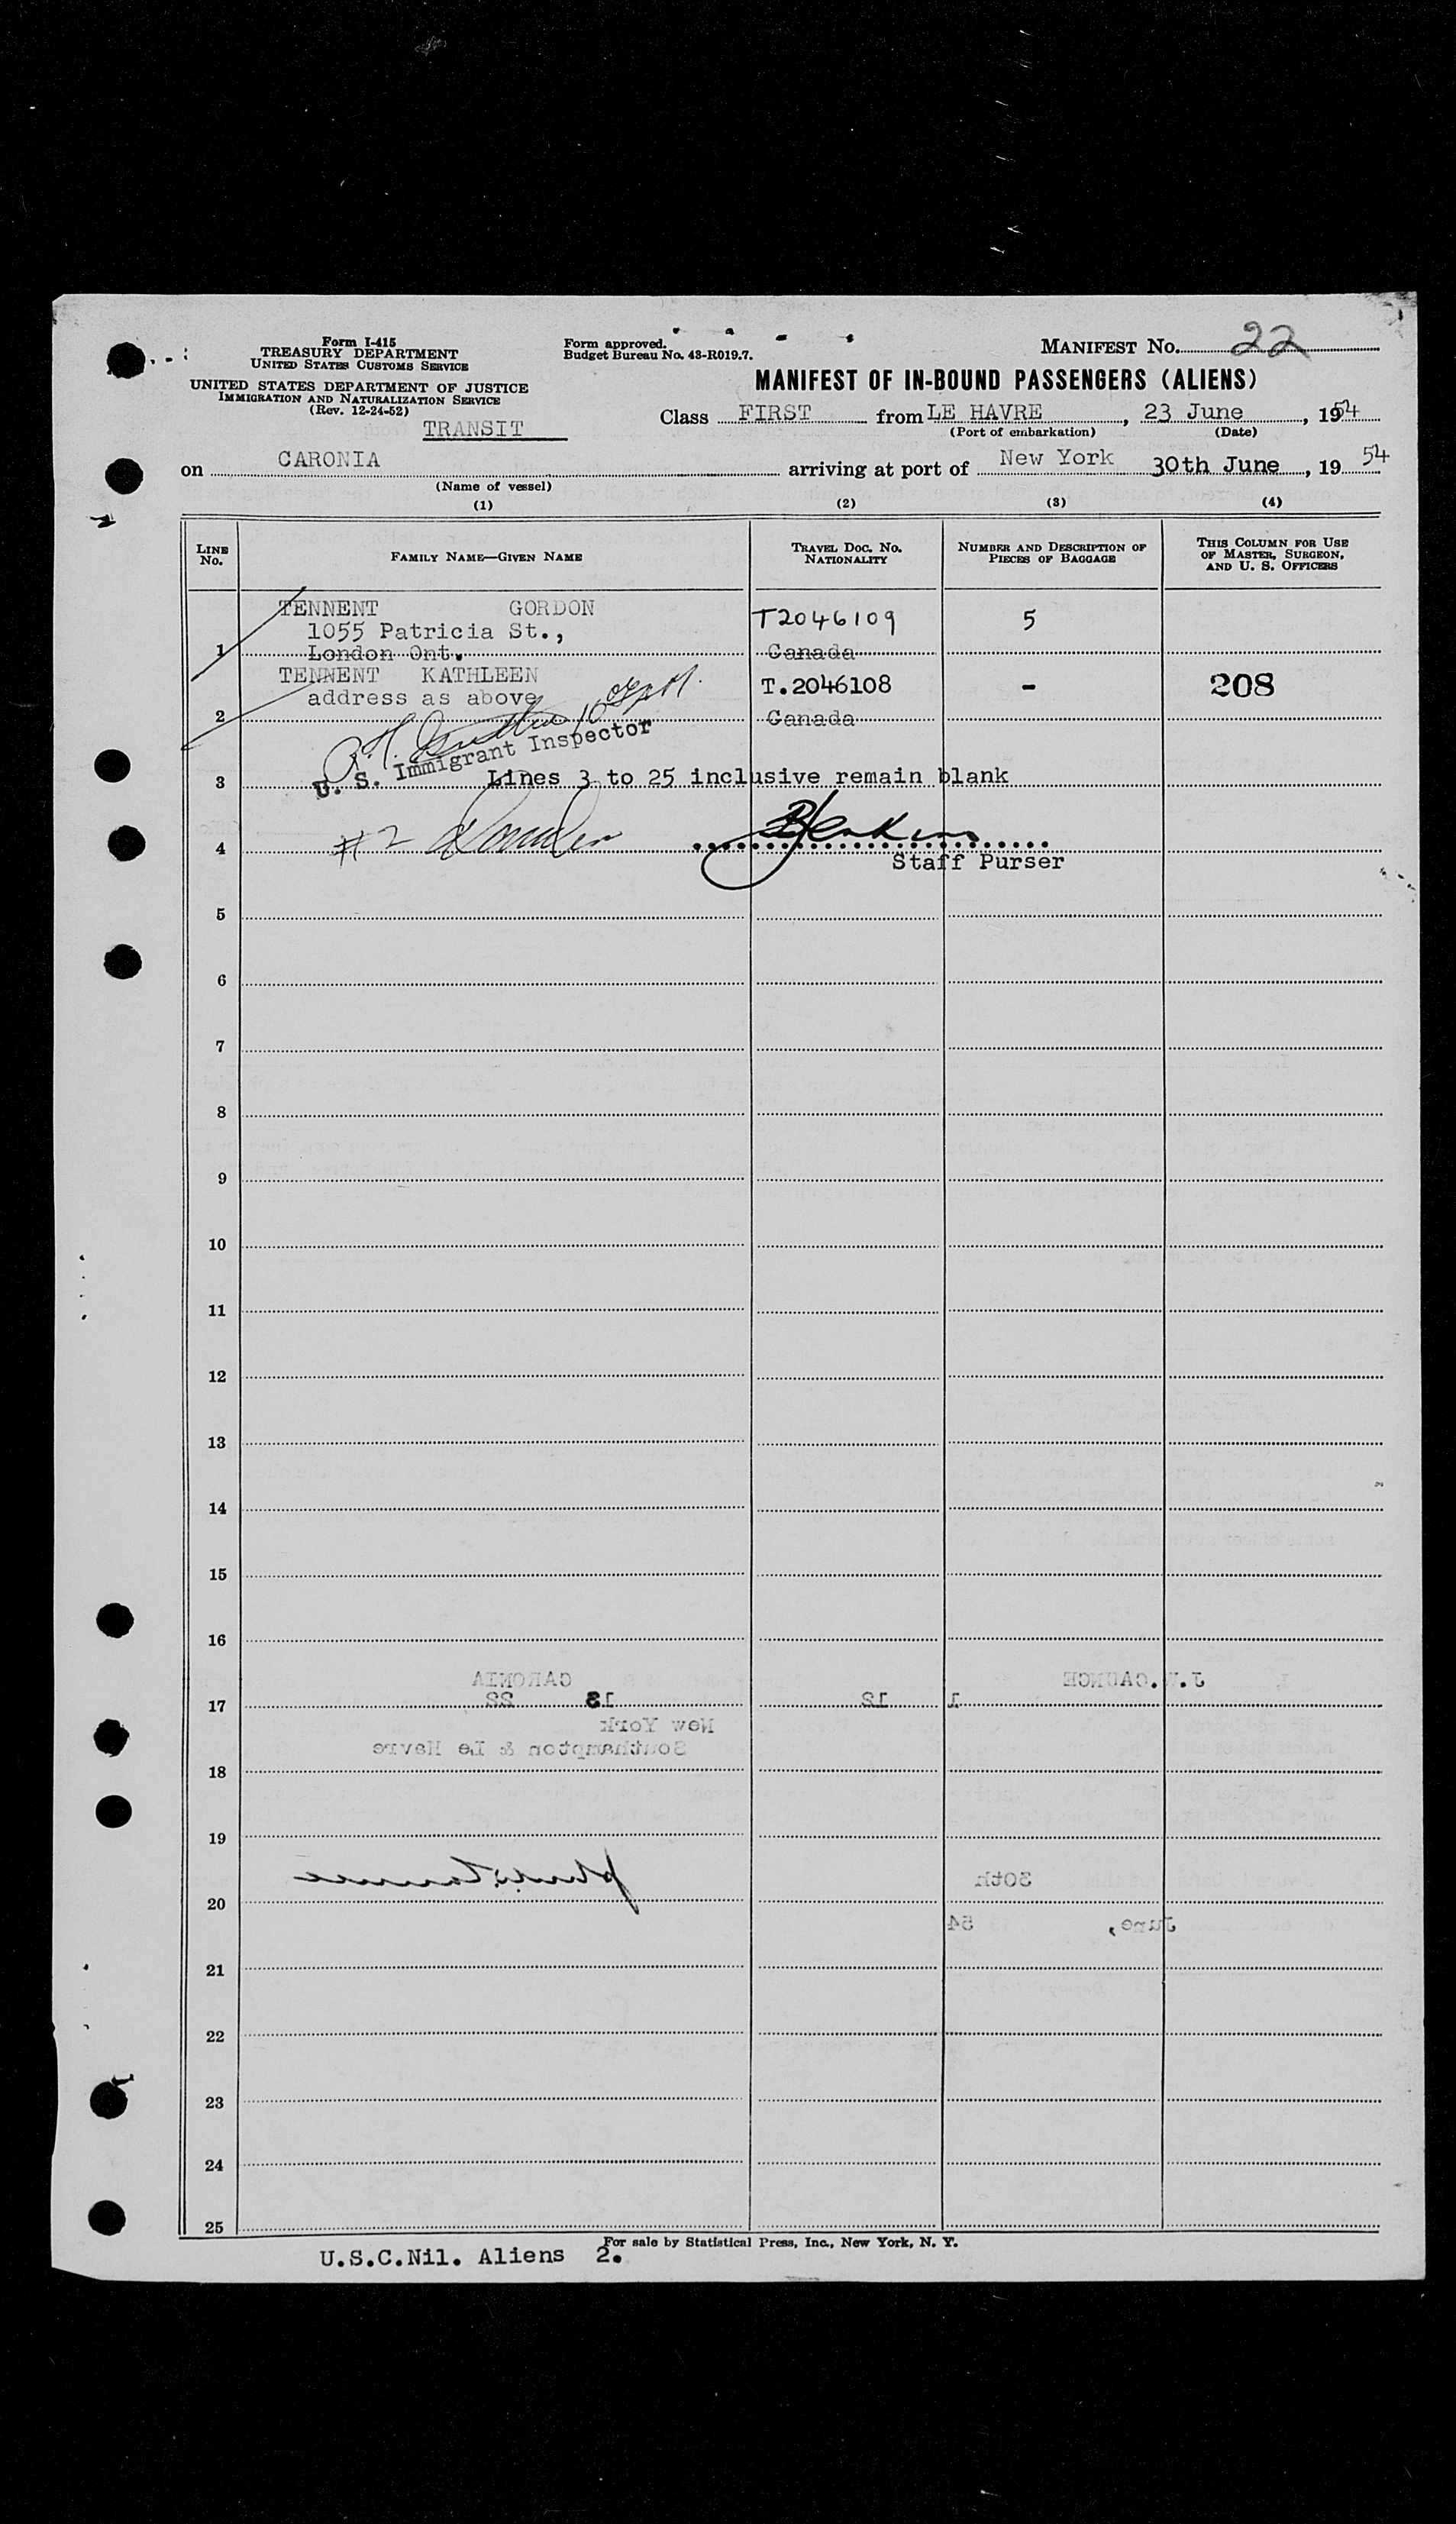 Form I-415
TREASURY DEPARTMENT
UNITED STATES CUSTOMS SERVICE
UNITED STATES DEPARTMENT OF JUSTICE
IMMIGRATION AND NATURALIZATION SERVICE
(Rev. 12-24-52)
TRANSIT
Form approved.
Budget Bureau No. 43-R019.7.
MANIFEST NO. 22
MANIFEST OF IN-BOUND PASSENGERS (ALIENS)
Class FIRST from LE HAVRE, 23 June, 1954
(Port of embarkation) (Date)
on CARONIA arriving at port of New York 30th June, 19 54
(Name of vessel)
(1) (2) (3) (4)
LINE NO. FAMILY NAME—GIVEN NAME TRAVEL DOC. NO. NATIONALITY NUMBER AND DESCRIPTION OF PIECES OF BAGGAGE THIS COLUMN FOR USE OF MASTER, SURGEON, AND U. S. OFFICERS
TENNENT GORDON T2046109 5
1055 Patricia St.,
1 London Ont. Canada
TENNENT KATHLEEN T.2046108 - 208
address as above
2 Canada
U. S. Immigrant Inspector
3 Lines 3 to 25 inclusive remain blank
#2
4 Staff Purser
5
6
7
8
9
10
11
12
13
14
15
16
CARONIA J.W.CAUNCE
17 22 13 12 1
New York
Southampton & Le Havre
18
19
30th
20
June, 54
21
22
23
24
25
For sale by Statistical Press, Inc., New York, N. Y.
U.S.C.Nil. Aliens 2.